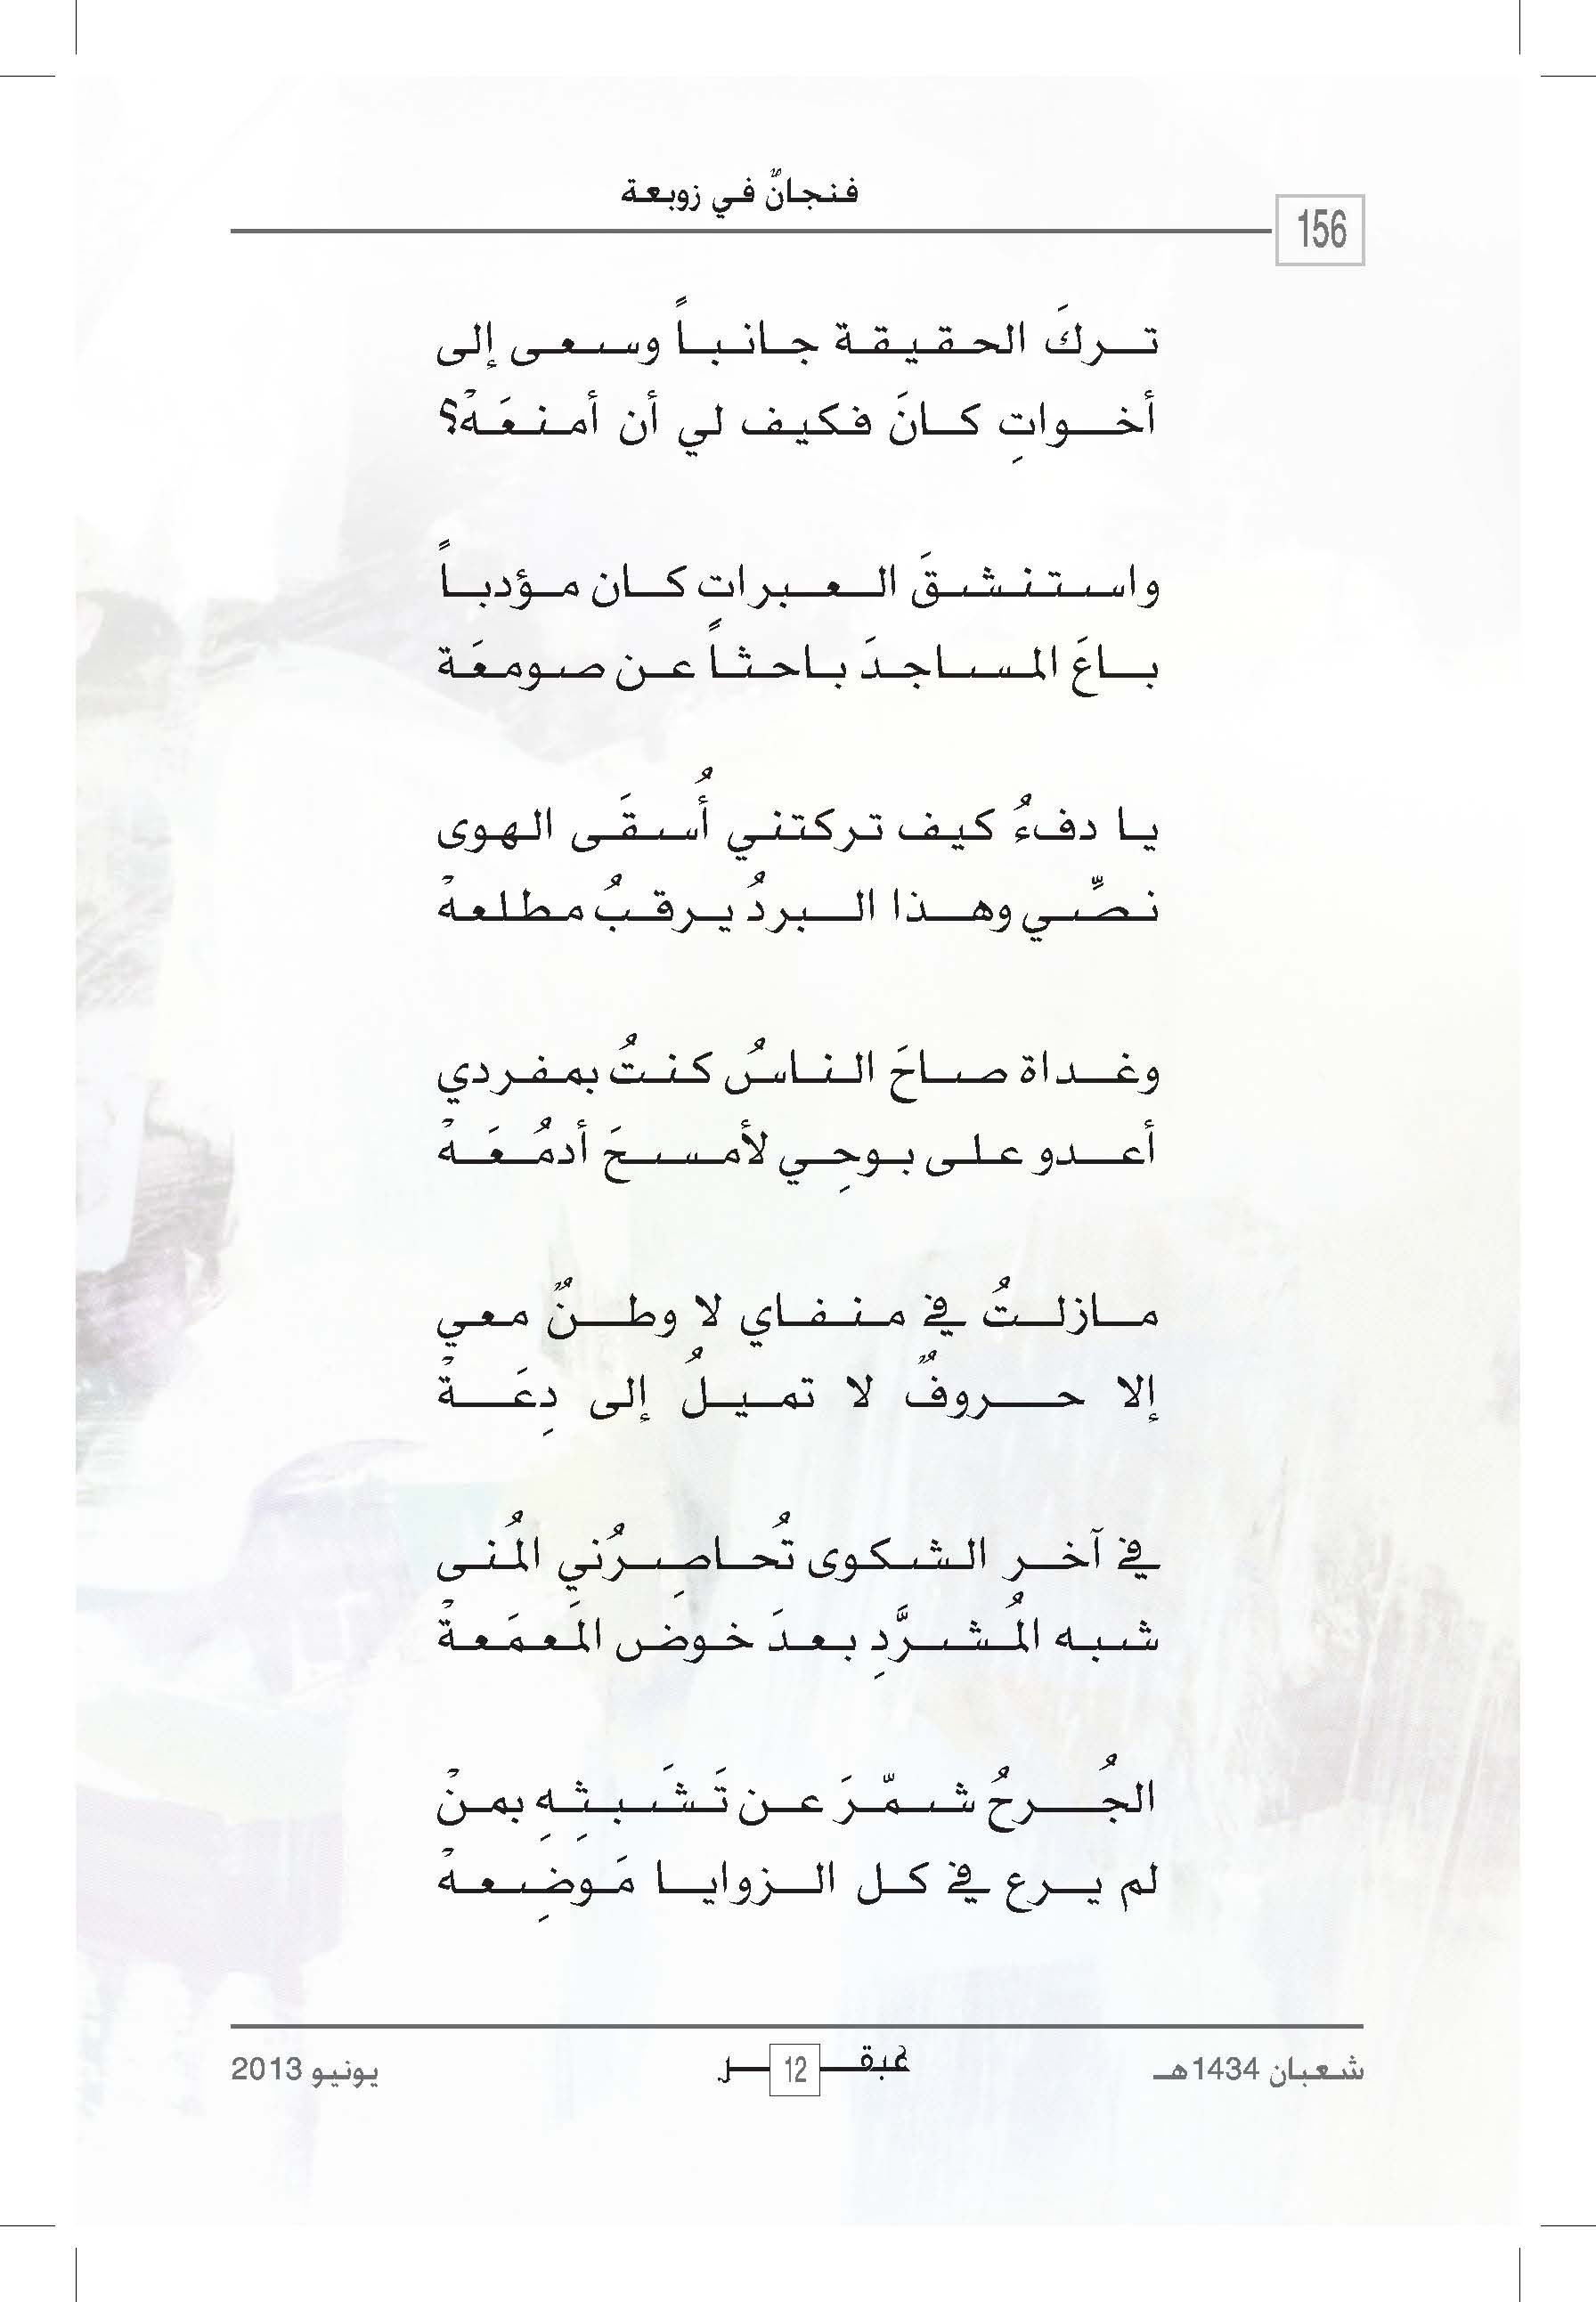 فنجانٌ في زوبعة
156
تركَ الحقيقة جانباً وسعى إلى
أخواتِ كانَ فكيف لي أن أمنعَهْ؟
واستنشقَ العبرات كان مؤدباً
باعَ المساجدَ باحثاً عن صومعَة
يا دفءُ كيف تركتني أُسقَى الهوى
نصِّي وهذا البردُ يرقبُ مطلعهْ
وغداة صاحَ الناسُ كنتُ بمفردي
أعدو على بوحِي لأمسحَ أدمُعَهْ
مازلتُ في منفاي لا وطنٌ معي
إلا حروفٌ لا تميلُ إلى دِعَةْ
في آخر الشكوى تُحاصِرُني المُنى
شبه المُشرَّدِ بعدَ خوض المَعمَعةْ
الجُرحُ شمّرَ عن تَشَبثِهِ بمنْ
لم يرع في كل الزوايا مَوضِعهْ
شعبان 1434هـ
عبقر
12
يونيو 2013